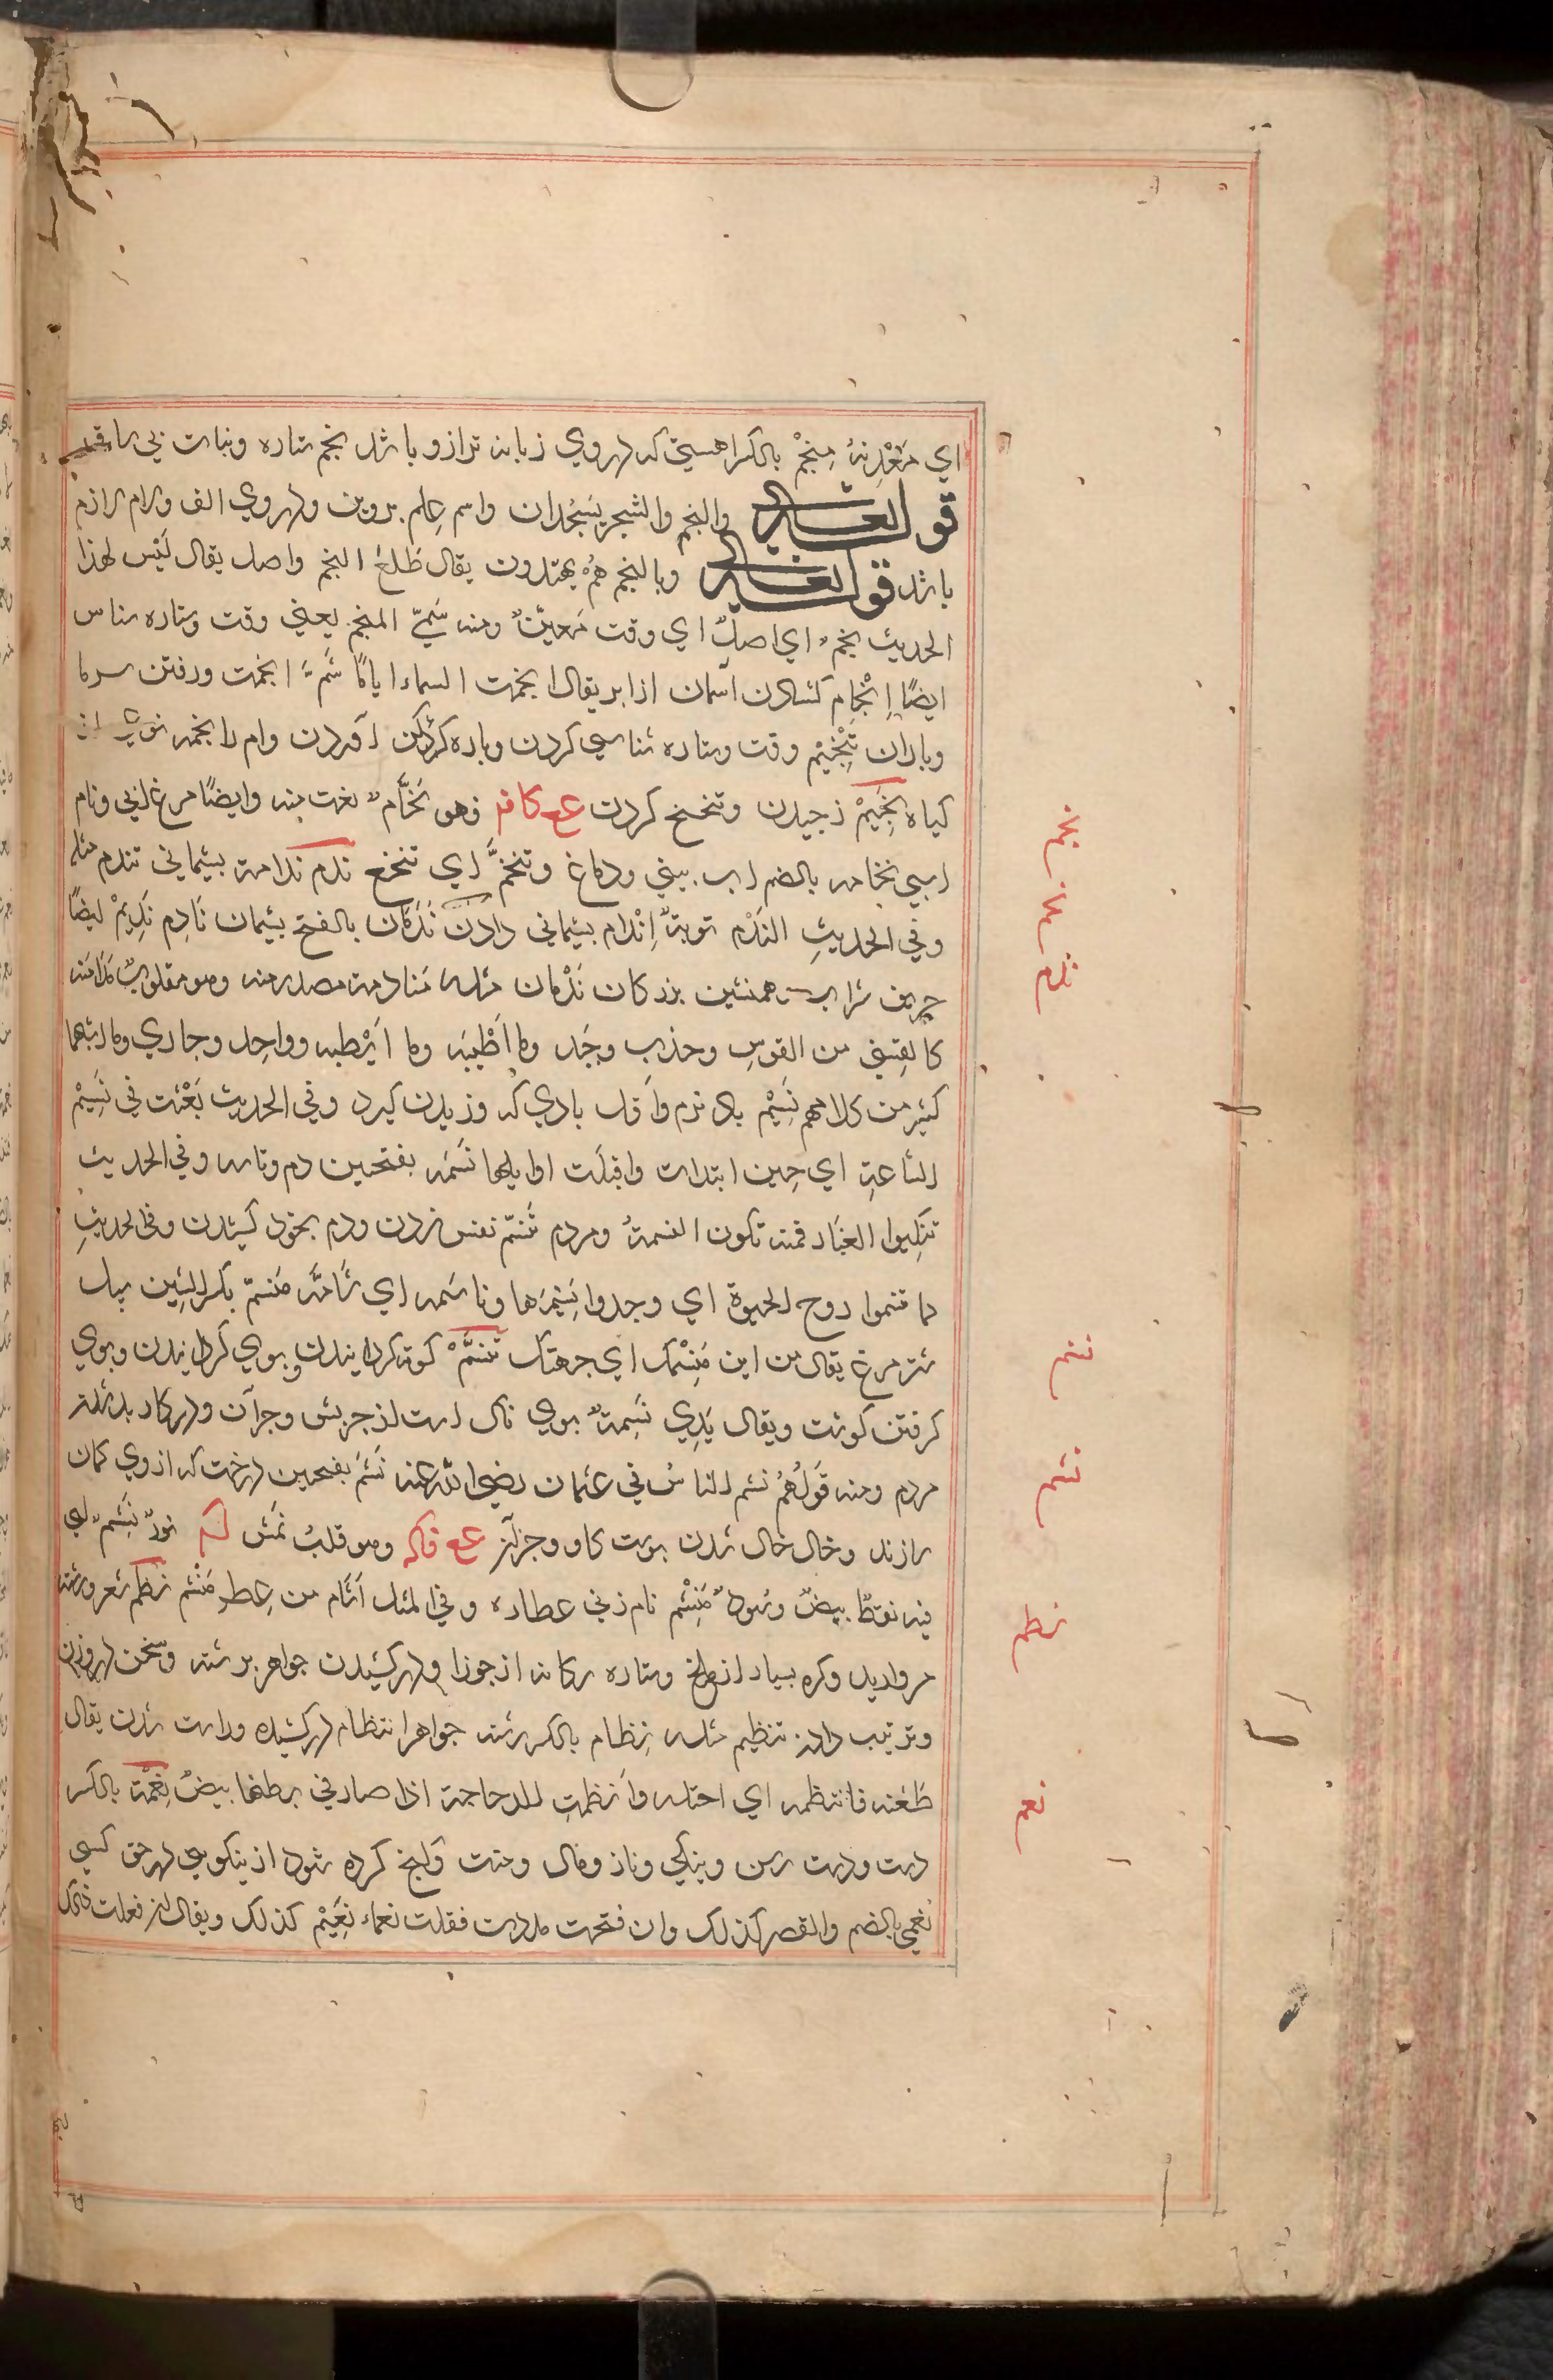 اي مَعْدِنهُ مِنْجَمْ بالكسر اهنيتي كه در وي زبانه ترازو باشد نجم ستاره ونبات بي ساق
قوله تعالى والنجم والشجر يَسْجُدان واسم عِلم پروين ودر وي الف ولام لازم
باشد قوله تعالى وبالنجم هُمْ يهتدون يقال طَلَعَ النجم واصل يقال لَيْس لهذا
الحديث نجمٌ اي اصلٌ اي وقت مُعيّنٌ ومنه سُمّيَ المنجم يعني وقت وستاره شناس
ايضًا اِنْجام كشادن آسمان از ابر يقال انجمت السماء اياما ثُمَّ انجمت ورفتن سرما
وباران تَنْجِيْم وقت وستاره شناسي كردن وپاره كردن وام را نجمه
كياه نَحِيْمْ زجيدن وتنحنح كردن مع كافه فهو نَحَّامٌ نعت منه وايضًا مرغ آبي ونام
اسپي نخامه بالضم آب بيني ودماغ وتنخّم اي تنخع ندم ندامة پشيماني تندم مثله
وفي الحديثِ النَدْم توبةٌ اِنْدام پشيماني دادن نَدْمان بالفتح پشيمان نَادِم نَدِيْمْ ايضًا
حريف شراب وهمنشين بزركان نَدْمان مثله مُنادمة مصدر منه وهو مقلوبُ مُدَامَنه
كالقِسِيّ من القوسِ وجذب وجَبَد وما اَطْيَبَه وما اَيْطَبه وواحِد وحادي وما اشبهها
كثير من كلامهم نَسِيْم باد نرم واَوّل بادي كه وزيدن كيرد وفي الحديث بُعِثت في نَسِيْمْ
الساعةِ اي حين ابتدات واقبلت اوايلها نَسَمه بفتحين دم وتاسه وفي الحديث
تنكبوا الغبَار فمنه تكون النسمةُ ومردم تَنَسّم نفس زدن ودم بخود كشيدن وفي الحديثِ
لما تنسموا روح الحيوة اي وجدوا نَسِيْمَها وناسَمه اي شَامَّه مَنسِم بكسر السّين سپل
شتر مرغ يقال من اين مَنْسِمُك اي وجهتك تَنَسُّمْ كوته كردانيدن وبوي كردانيدن وبوي
كرفتن كوشت ويقال يَدِي نَسِمةٌ بوي ناك است از چربش وجزآن ودر كار بد شدن
مردم ومنه قَوْلُهُمْ نشم الناسُ في عثمان رضي اللّه عنه نَشَمَ بفتحين درخت كه از وي كمان
سازند وخال خال شدن پوست كاو وجزآن مع فاكه وهو قلبُ نَمش ثورٌ نَشِمٌ اي
فيه نقطٌ بيضٌ وسُودٌ مَنْشِم نام زني عطاره وفي المثل اَشْام من عِطرِ مَنْشَم نظم شعر ورشته
مرواريد وكره بسيار از ملخ وستاره سكانه از جوزا ودر كشيدن جواهر بر رشته وسخن در وزن
وترتيب دادن تنظيم مثله نِظام بالكسر رشته جواهر انتظام دركشيده وراست شدن يقال
طَعَنه فانتظمه اي اختله واَنظمتِ الدجاجة اذا صار في بطنها بيضٌ نِعْمَة بالكسر
دست ودست رس ونيكي وناز ومال ومنت وآنچ كرده شود از نيكويي در حق كسي
نعمي بالضم والقصر كذلك وان فتحت مددت فقلت نعماء نَعِيْم كذلك ويقال ان فعلت ذلك
نجم
نحم
ندم
نسم
نشم
نظم
نعم